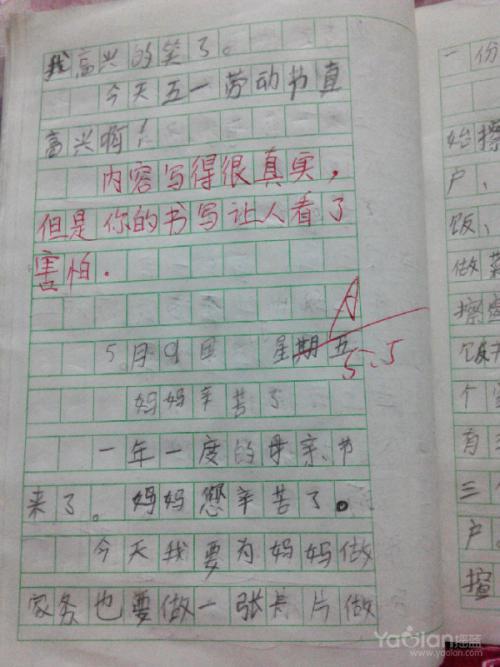 我高兴的笑了。
今天五一劳动节真
高兴啊！
内容写得很真实，
但是你的书写让人看了
害怕.
A
5.5
5月9日 星期五
妈妈辛苦了
一年一度的母亲节
来了。妈妈您辛苦了。
今天我要为妈妈做
家务也要做一张卡片做
一份
始擦
户、
饭、
做菜
擦窗
饭
个
有
三
户。
擦
Yaolan摇篮
www.yaolan.com